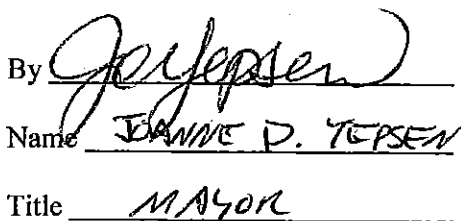 By Jo Yepsen
Name JOANNE D. YEPSEN
Title MAYOR